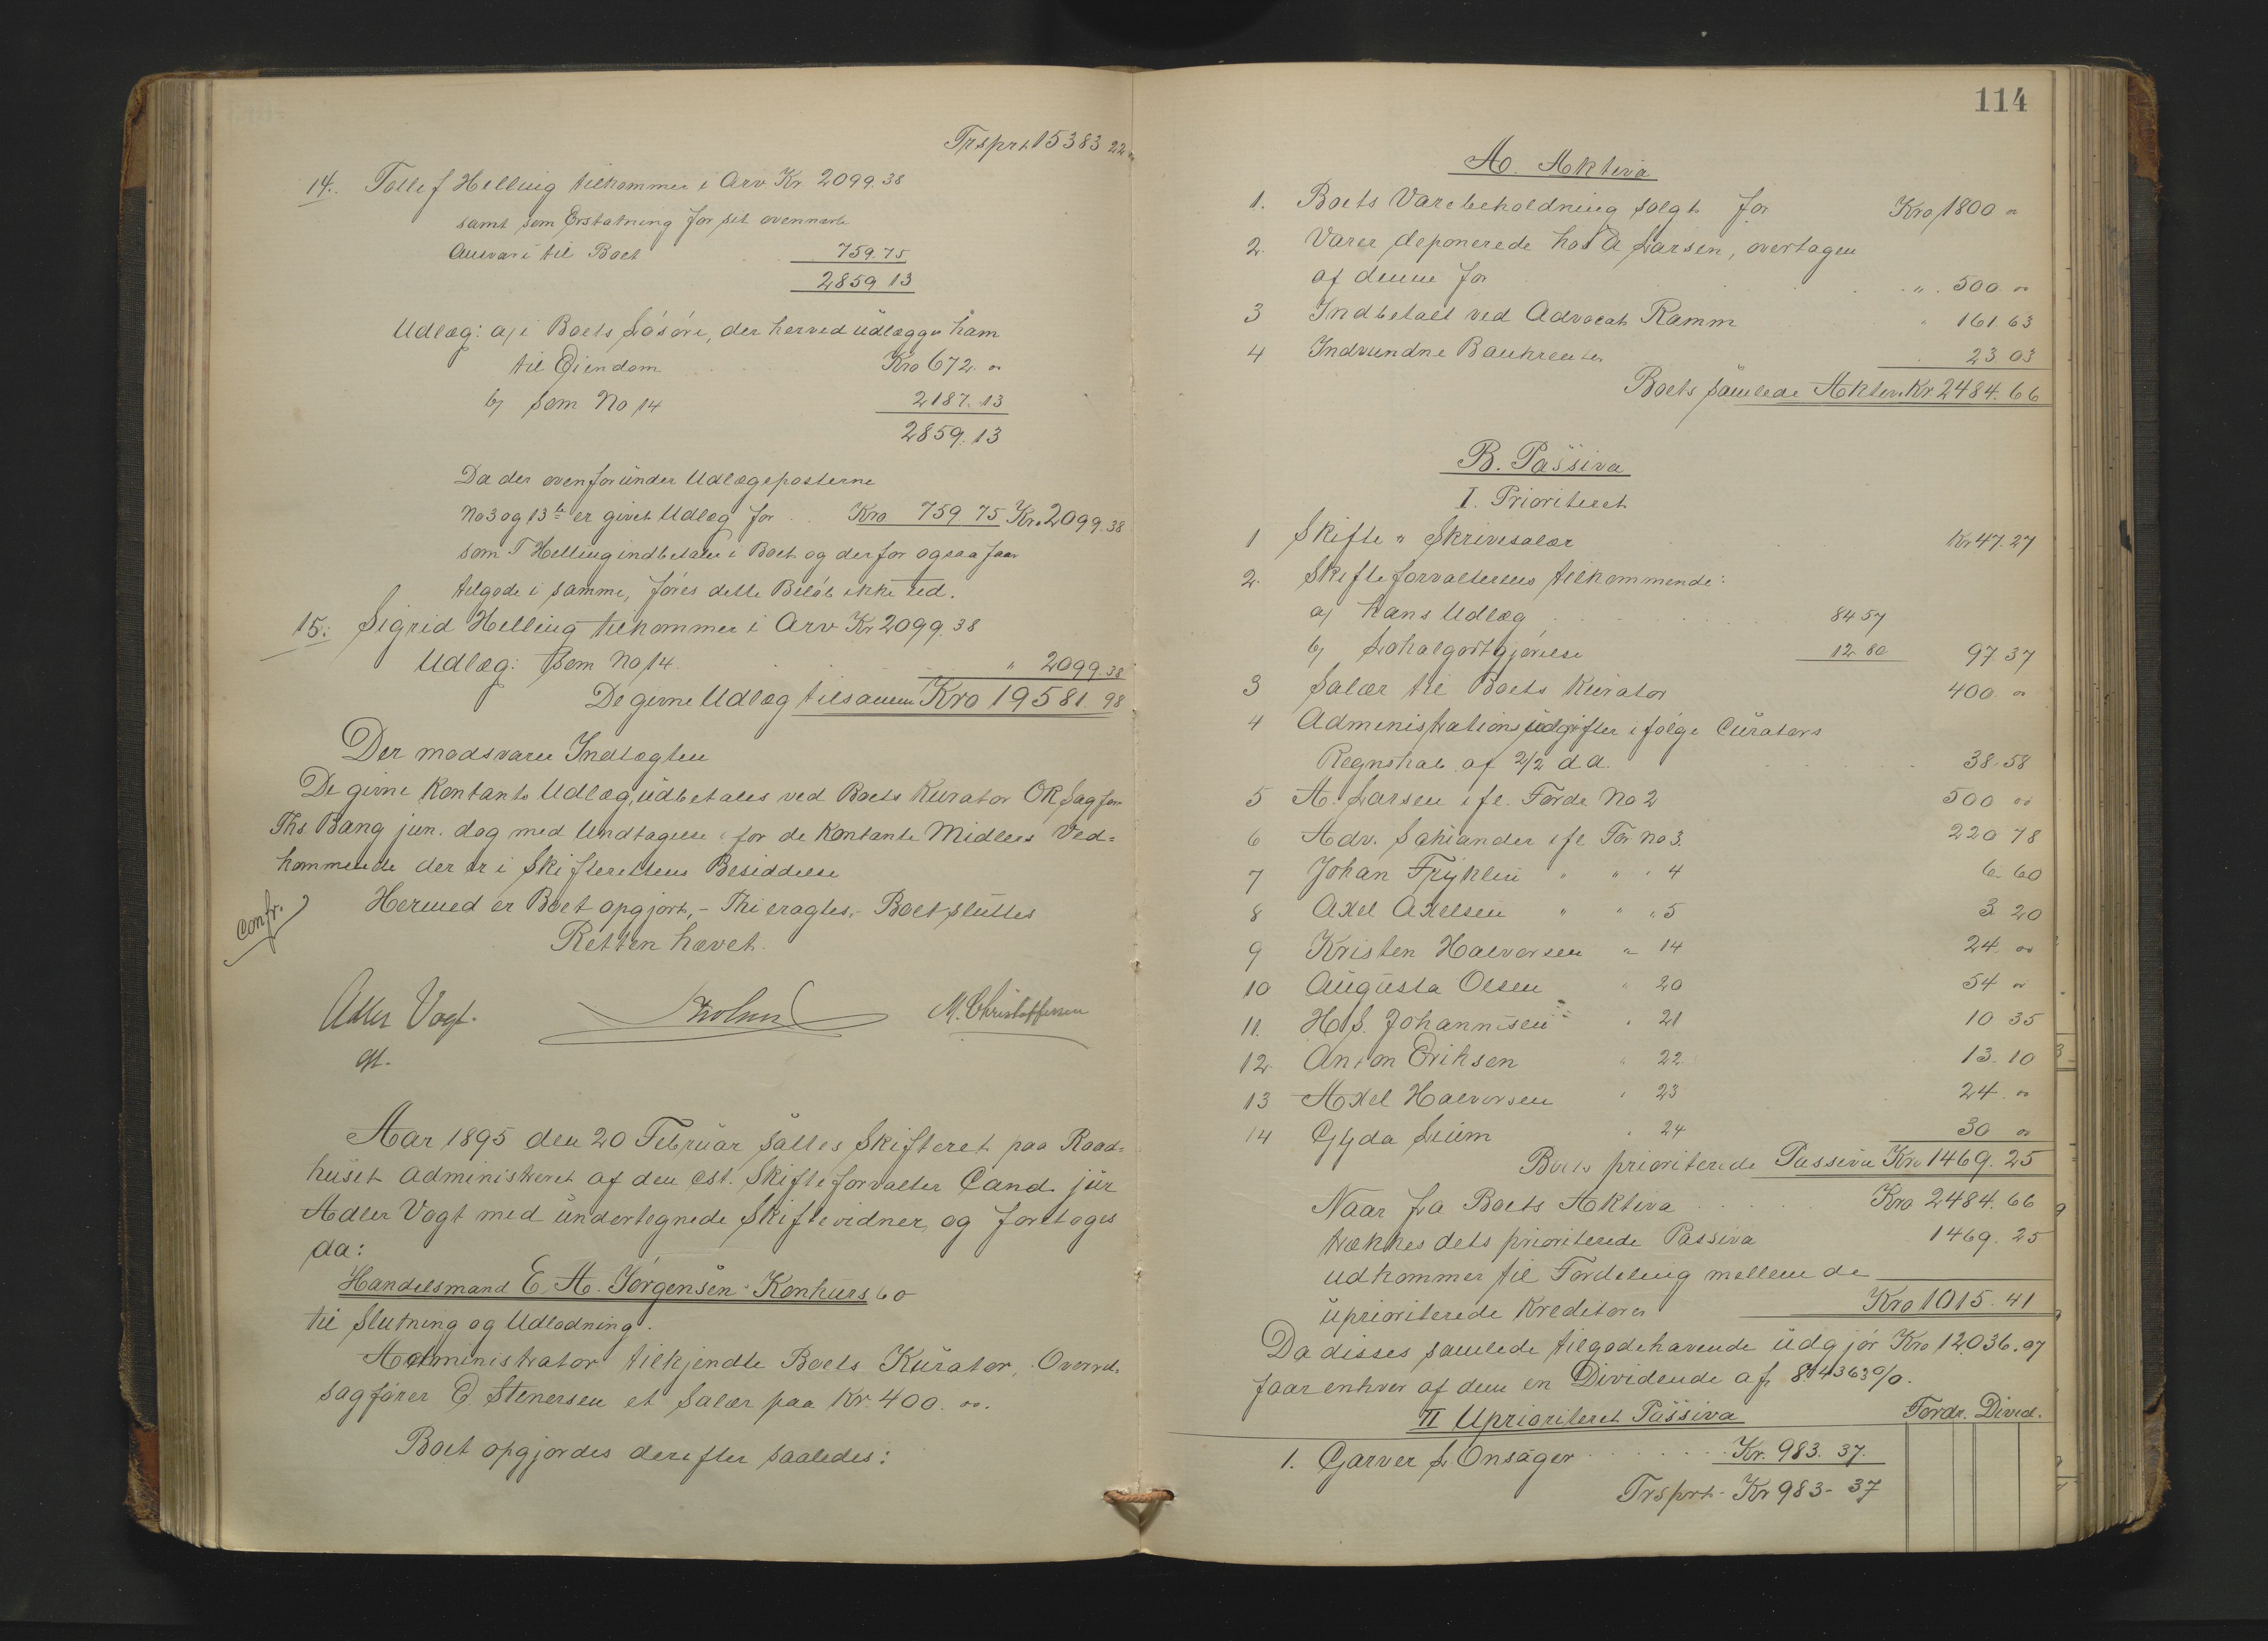 Trsprt 15383 22
14. Tollef Helling tilkommer i Arv Kr 2099.38
samt som Erstatning for sit ovennævnte
Ansvar i til Boet 759.75
2859 13
Udlæg: a) i Boets Løsøre, der herved udlægges ham
til Eiendom Kro 672. "
b) som No 14 2187.13
2859.13
Da der ovenfor under Udlægsposterne
No 3 og 13 er givet Udlæg for Kro 759.75 Kr. 2099.38
som T Helling indbetaler i Boet og derfor ogsaa faar
tilgode i samme, føres dette Beløb ikke ud.
15. Sigrid Helling tilkommer i Arv Kr 2099.38
Udlæg: som No 14 " 2099.38
De givne Udlæg tilsammen Kro 19581.98
Der modsvarer Indtægten
De givne Kontante Udlæg, udbetales ved Boets Kurator ORSagfør
Ths. Bang jun. dog med Undtagelse for de Kontante Midlers Ved=
kommende der er i Skifterettens Besiddelse
Hermed er Boet opgjort, – Thi eragtes, – Boet sluttes
Confr.
Retten hævet.
Adler Vogt. M. Christoffersen
cst.
Aar 1895 den 20 Februar sattes Skifteret paa Raad=
huset administreret af den cst. Skifteforvalter Cand. jur
Adler Vogt med undertegnede Skiftevidner, og foretoges
da:
Handelsmand E. A. Jørgensens Konkursbo
til Slutning og Udlodning.
Administrator tilkjendte Boets Kurator, Overrets
sagfører E Stenersen et Salær paa Kr. 400. oo.
Boet opgjordes derefter saaledes:
114
A. Aktiva
1. Boets Varebeholdning solgt for Kro 1800 "
2. Varer deponerede hos A Larsen, overtagen
af denne for " 500 oo
3 Indbetalt ved Advocat Ramm " 161.63
4 Indvundne Bankrenter 23 03
Boets samlede Aktiva Kr. 2484.66
B. Passiva
I. Prioriteret
1 Skifte " Skrivesalær Kr 47.27
2. Skifteforvalterens tilkommende:
a) hans Udlæg 84 57
b) Lokalgodtgjørelse 12.80 97.37
3 Salær til Boets Kurator 400 oo
4 Administrationsudgifter ifølge Curators
Regnskab af 2/2 d.A. 38.58
5 A. Larsen ifl. Fordr No 2 500 oo
6 Adv. Schiander ifl For no 3. 220 78
7 Johan Fryklin " " " 4 6 60
8 Axel Axelsen " " " 5 3 20
9 Kristen Halvorsen " 14 24 oo
10 Augusta Olsen " 20 54 oo
11. H.S. Johannisen " 21 10 35
12. Anton Eriksen " 22 13.10
13 Axel Halvorsen " 23 24 oo
14 Gyda Lium " 24 30 oo
Boets prioriterede Passiva Kro 1469.25
Naar fra Boets Aktiva Kro 2484.66
trækkes dets prioriterede Passiva 1469.25
udkommer til Fordeling mellem de
uprioriterede Kreditorer Kro 1015.41
Da disses samlede tilgodehavende udgjør Kro 12036.07
faar enhver af dem en Dividende af 8.43639%.
II Uprioriteret Passiva Fordr. Divid.
1. Garver L. Onsager Kr. 983.37.
Trsprt – Kr 983 – 37